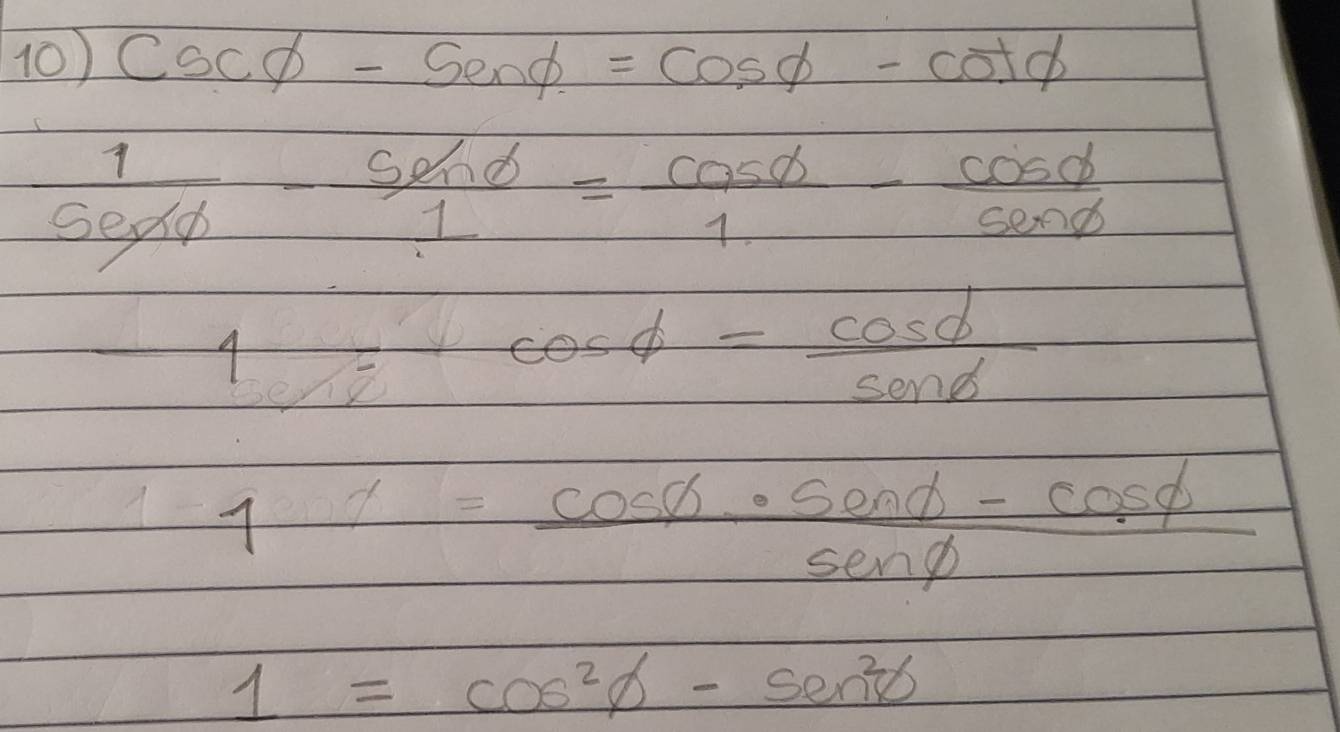 10) Cscϕ - Senϕ = Cosϕ - cotϕ
1/senϕ - senϕ/1 = cosϕ/1 - cosϕ/senϕ
1 = cosϕ - cosϕ/senϕ
1 = cosϕ · senϕ - cosϕ/senϕ
1 = cos²ϕ - sen²ϕ